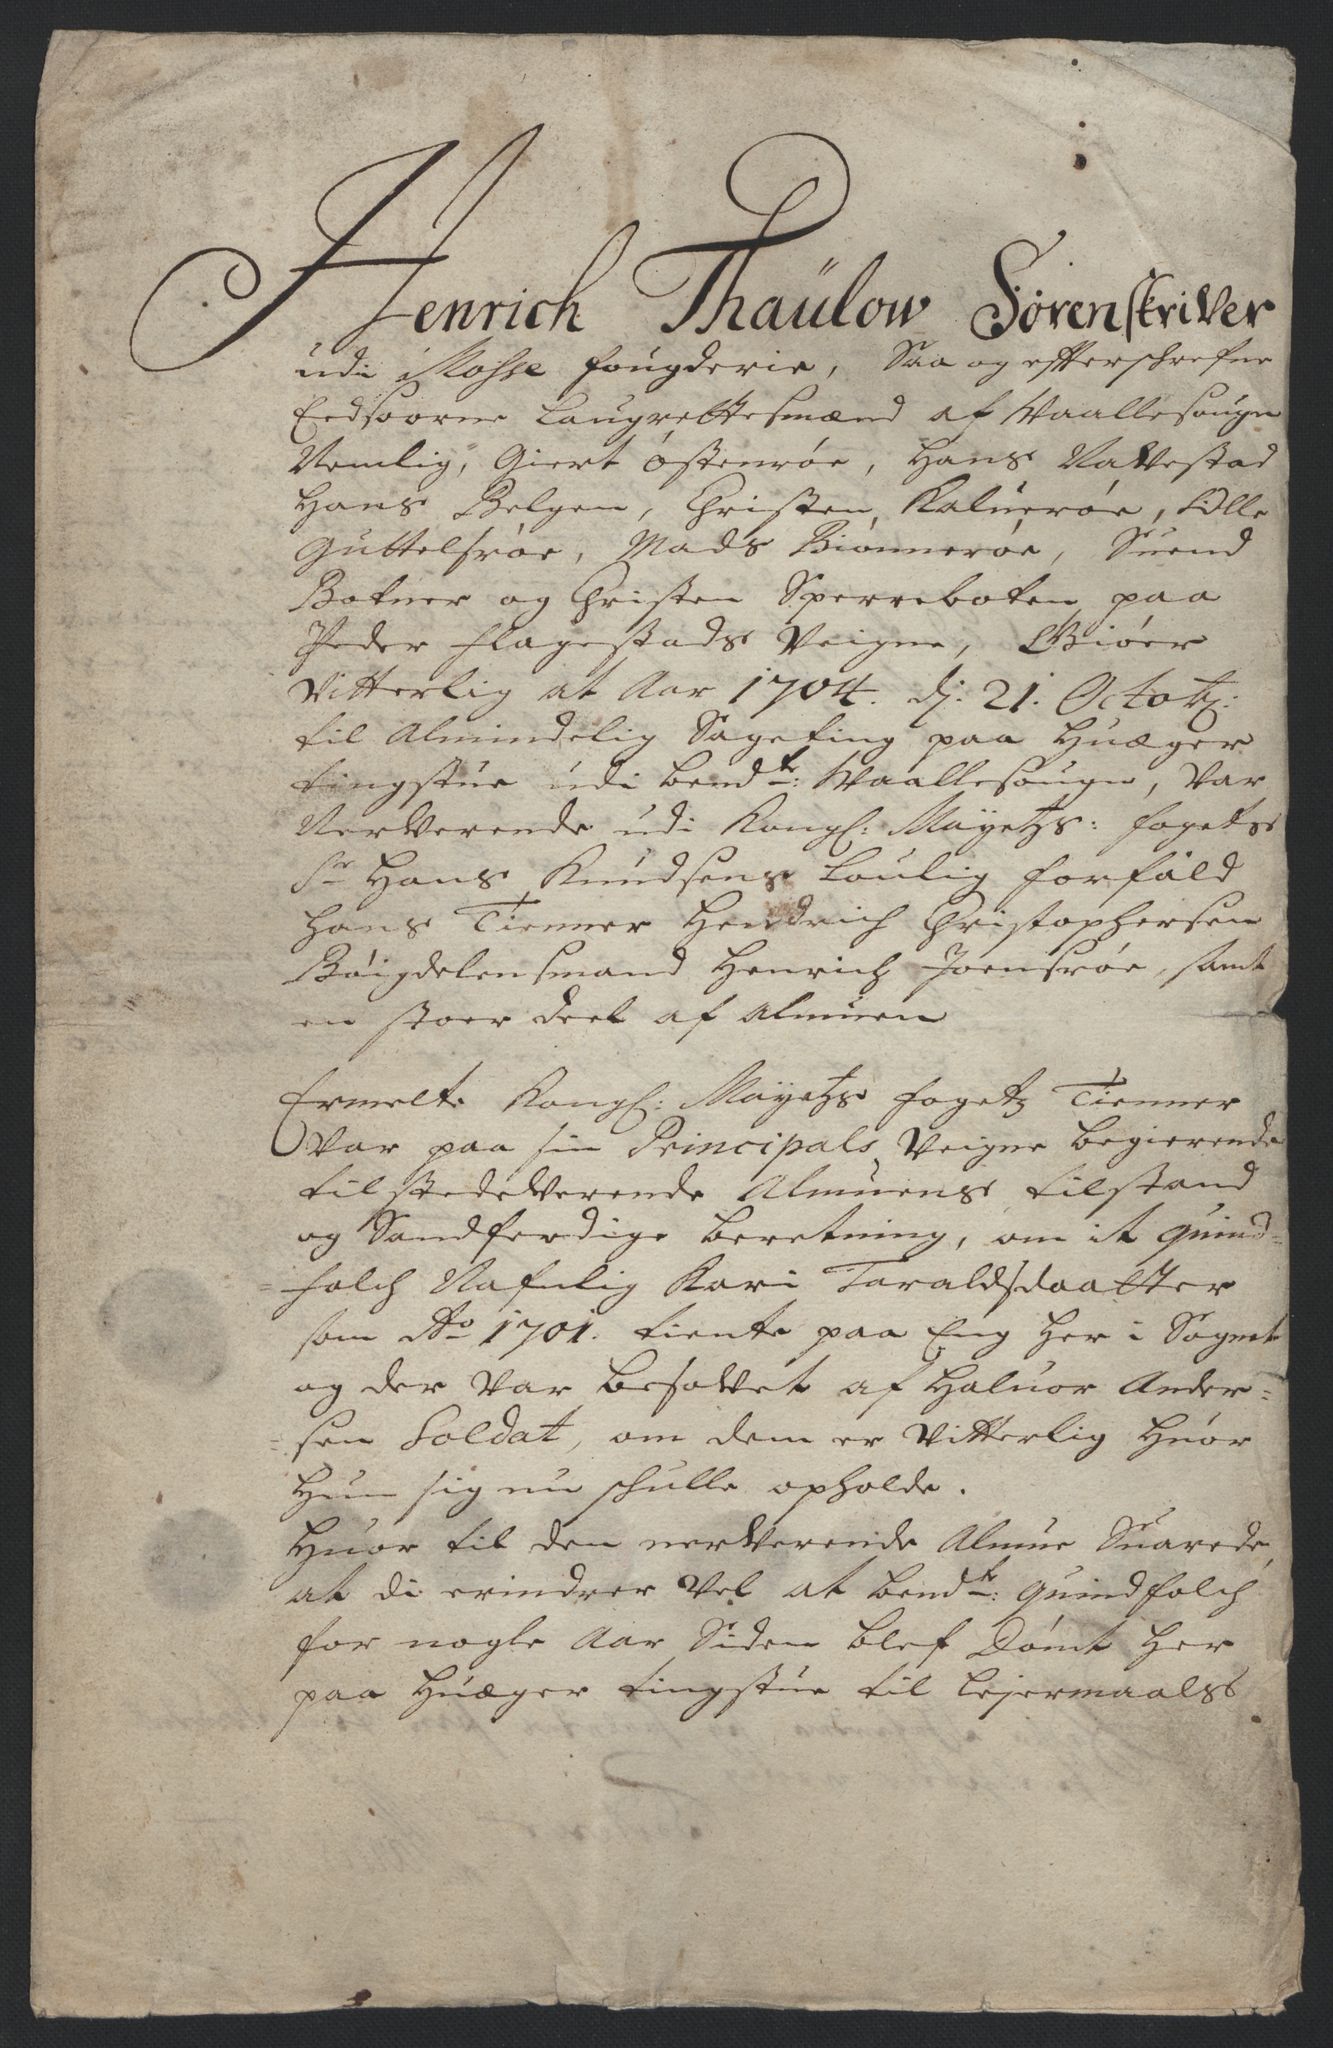 Henrich Thaülow Sorenskriver
udi Mosse fougderie, Saa og efterschrefne
Eedsoorne Laugrettesmænd af Waallesougn
Nemlig, Giert Østenrøe, Hans Nawestad
Hans Belgen, Christen Kaluerøe, Olle
Guttelsrøe, Mads Biønnerøe, Suend
Botner og Christen Sperreboten paa
Peder Flagestads Veigne, Giøer
Vitterlig at Aar 1704. dj: 21. Octobr:
til Almindelig Sageting paa Huæger
tingstue udi bemdte: Waallesougn, Var
Nerverende udi Kongl: Mayetzs: fogets
Sr Hans Knudsens Loulig forfald
Hans Tienner Hendrich Christophersen
Bøigdelensmand Henrich Joensrøe, samt
en stoer deel af almuen
Ermelte Kongl: Mayetzs fogetz Tienner
Var paa sin Principals Veigne begierende
til stedeverende Almuens tilstand
og Sandferdige beretning, om it quind=
=folch Nafnlig Kari Taraldsdaatter
som Ao 1701. tiente paa Eng her i Sognet
og der var besovet af Haluor Ander=
=sen Soldat, om dem er Vitterlig huor
Hun sig nu schulle opholde.
Huor til den nerverende Almue Suarede,
at di erindrer vel at bemdte: quindfolch
for nogle Aar Siden blef Dømt her
paa Huæger tingstue til Lejermaals